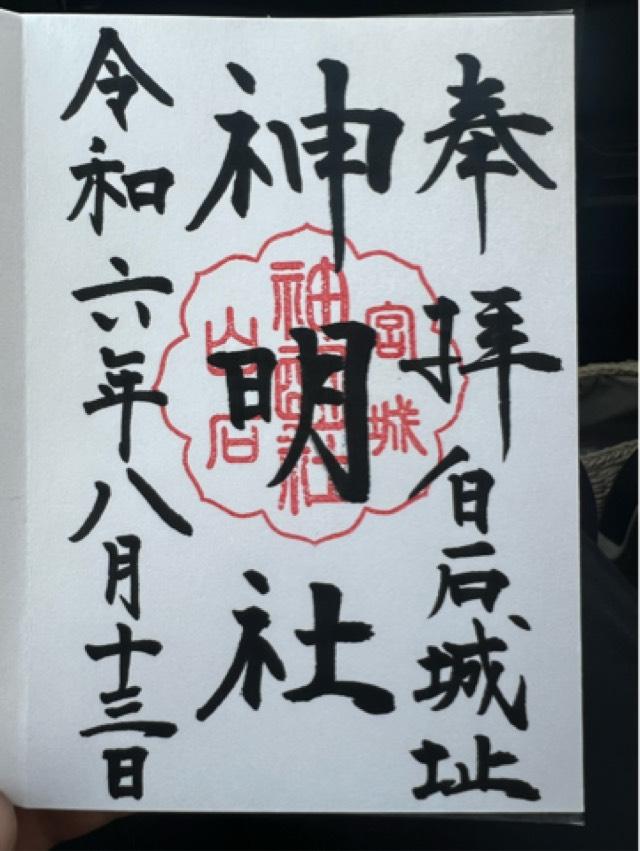 奉拝 白石城址
神明社
令和六年八月十三日
宮城
神明社
白石